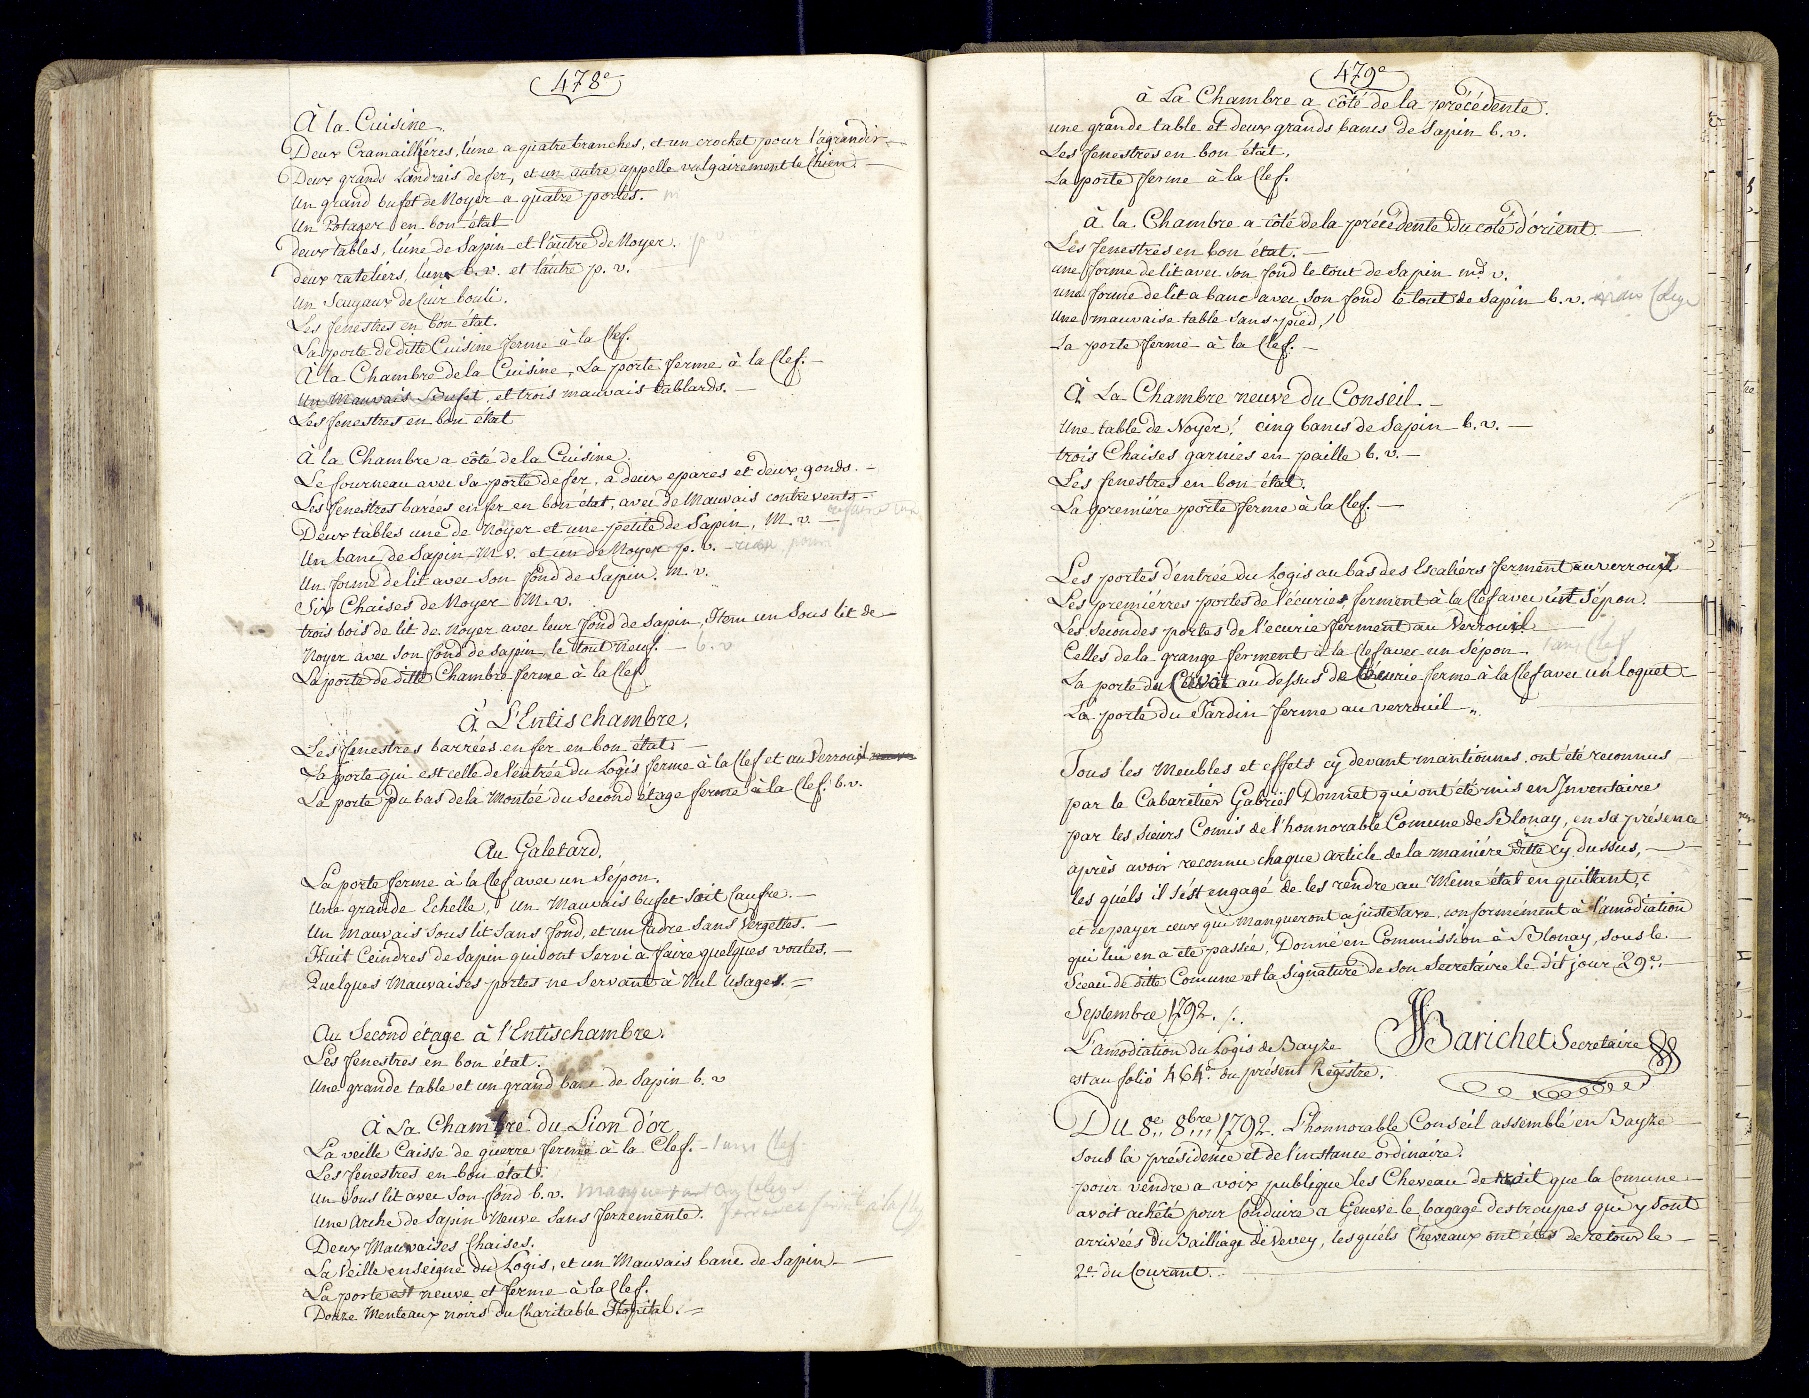 478e
À la Cuisine.
Deux Cramailliéres, l'une a quatre branches, et un crochet pour l'agrandir
Deux grands Landrais de fer, et un autre appelle vulgairement le Chien.
Un grand bufet de Noyer a quatre portes.
Un Potager en bon état
deux tables, l'une de Sapin et l'autre de Noyer.
deux rateliérs, l'une b. v. et l'autre p. v.
Un Seuyaux de Cuir bouli.
Les fenestres en bon état.
La porte de ditte Cuisine ferme à la Clef.
À la Chambre de la Cuisine, La porte ferme à la Clef.
Un Mauvais Bufet, et trois mauvais tablards.
Les fenestres en bon état
À la Chambre a côté de la Cuisine.
Le fourneau avec sa porte de fer, a deux epares et deux gonds.
Les fenestres barées en fer en bon état, avec de Mauvais contrevents
Deux tables une de Noyer et une petite de Sapin, M. v.
Un banc de Sapin M v. et un de Noyer p. v.
Un forme de lit avec son fond de Sapin. m. v.
Six Chaises de Noyer M. v.
trois bois de lit de Noyer avec leur fond de Sapin, Item un Sous lit de
Noyer avec son fond de sapin, le tout neuf. b. v
La porte de ditte Chambre ferme à la Clef
À L'Entischambre.
Les fenestres barrées en fer en bon état.
La porte qui est celle de l'entrée du Logis ferme à la Clef et au Verrouil
La porte du bas de la Montée du Second etage ferme à la Clef. b. v.
Au Galetard.
La porte ferme à la Clef avec un Sépon.
Une grande Echelle, un Mauvais bufet soit Caufre.
Un Mauvais Sous lit Sans fond, et un Cadre Sans Vergettes.
Huit Ceindres de Sapin qui ont Servi à faire quelques voutes.
Quelques Mauvaises portes ne Servant à Nul Usages.
Au Second étage à l'Entischambre.
Les fenestres en bon état.
Une grande table et un grand banc de Sapin b. v
À La Chambre du Lion d'or
La veille Caisse de guerre ferme à la Clef. - sans Clef.
Les fenestres en bon état.
Un Sous lit avec Son fond b. v.
Une Arche de Sapin Neuve Sans ferremente.
Deux Mauvaises Chaises.
La Veille enseigne du Logis, et un Mauvais banc de Sapin.
La porte est neuve et ferme à la Clef.
Douze Menteaux noirs du Charitable Hopital.
479e
à La Chambre a côté de la précédente.
une grande table et deux grands bancs de Sapin b. v.
Les fenestres en bon état,
La porte ferme à la Clef.
à la Chambre a côté de la précédente du coté d'orient.
Les fenestres en bon état.
une forme de lit avec son fond le tout de Sapin md. v.
une forme de lit a banc avec son fond le tout de Sapin b. v.
Une mauvaise table sans pied,
La porte ferme à la Clef.
À La Chambre neuve du Conseil.
Une table de Noyer, cinq bancs de Sapin b. v.
trois Chaises garnies en paille b. v.
Les fenestres en bon état.
La premiére porte ferme à la Clef.
Les portes d'entrée du Logis au bas des Escaliérs ferment au verrouil
Les premiérres portes de l'écuries, ferment à la Clef avec un Sépon.
Les secondes portes de l'écurie ferment au Verrouil.
Celles de la grange ferment à la Clef avec un Sépon. sans Clef
La porte du Cavot au dessus de l'écurie ferme à la Clef avec un loquet
La porte du Jardin ferme au verrouil „
Tous les Meubles et effets cy devant mantionnés, ont été reconnus
par le Cabaretier Gabriel Donnet qui ont été mis en Inventaire
par les, sieurs Comis de l'honnorable Comune de Blonay, en sa présence
après avoir reconnu chaque article de la maniére ditte cy dussus,
les quéls il s'est engagé de les rendre au Même état en quittant,
et de payer ceux qui Manqueront a juste taxe, conformément à l'amodiation
qui lui en a été passée, Donné en Commission à Blonay, sous le
Sceau de ditte Comune et la Signature de son Secretaire le dit jour 29e.
Septembre 1792. /.
L'amodiation du Logis de Bayze
est au folio 464e. du présent Régistre.
JBarichet Secretaire
Du 8e.. 8bre... 1792. L'honnorable Conseil assemblé en Bayze
sous la présidence et de l'instance ordinaire.
pour vendre a voix publique les Cheveau de trait que la Comune
avoit achêté pour Conduire a Genève le bagage des troupes que y sont
arrivées du Bailliage de Vevey, les quéls Cheveaux ont étés de retour le
2e. du Courant.